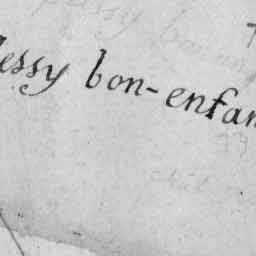 lessy bon-enfan